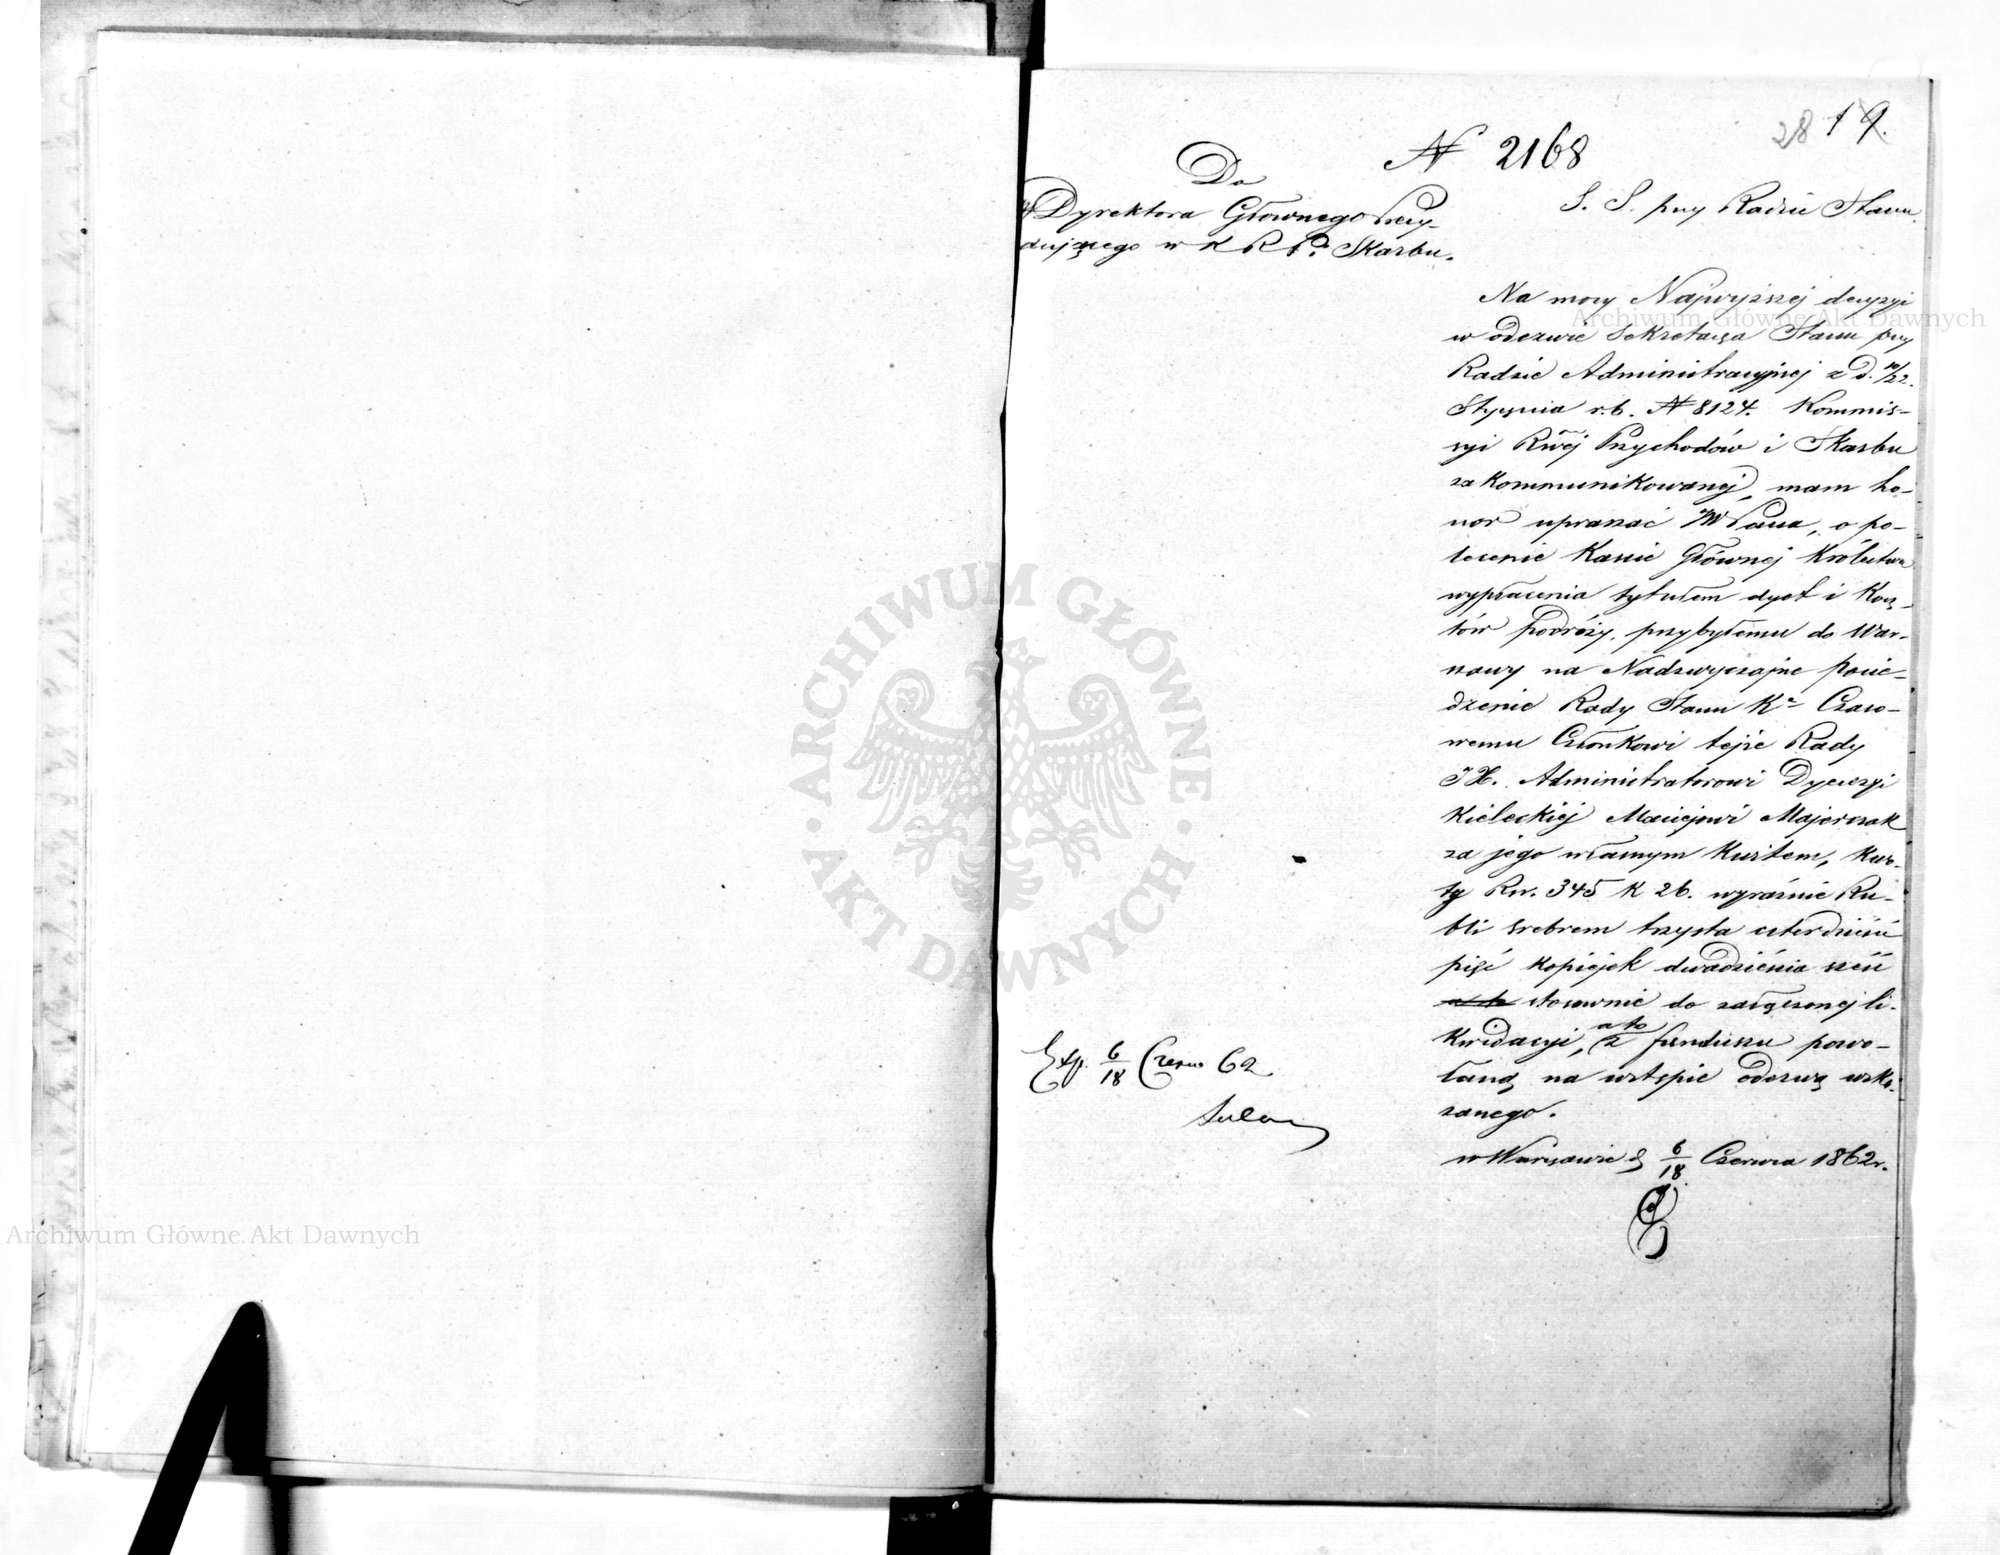 28 19.
N 2168
Do
Dyrektora Głównego Prezy-
dującego w K R P. i Skarbu.
S. S. przy Radzie Stanu.
Na mocy Najwyższej decyzyi
w odezwie Sekretarza Stanu przy
Radzie Administracyjnej z d. 10/22.
Stycznia r.b. N 8124. Kommis-
syi Rwej Przychodów i Skarbu
zakommunikowanej, mam ho-
nor upraszać JW Pana, o po-
lecenie Kassie Głównej Królestwa
wypłacenia tytułem dyet i Kosz-
tów podróży, przybyłemu do War-
szawy na Nadzwyczajne posie-
dzenie Rady Stanu Ka Czaso-
wemu Członkowi tejże Rady
JX. Administratorowi Dyecezyi
Kieleckiéj Maciejowi Majerczak
za jego własnym Kwitem, Kwo-
tę Rsr. 345 K 26. wyraźnie Ru-
bli srebrem trzysta czterdzieści
pięć kopiejek dwadzieścia sześć
a to stosownie do załączonej li-
kwidacyi, a to z funduszu powo-
łaną na wstępie odezwą wska-
zanego.
w Warszawie d 6/18 Czerwca 1862 r.
Exp. 6/18 Czerw 62
Archiwum Główne Akt Dawnych
Archiwum Główne Akt Dawnych
ARCHIWUM GŁÓWNE · AKT DAWNYCH ·